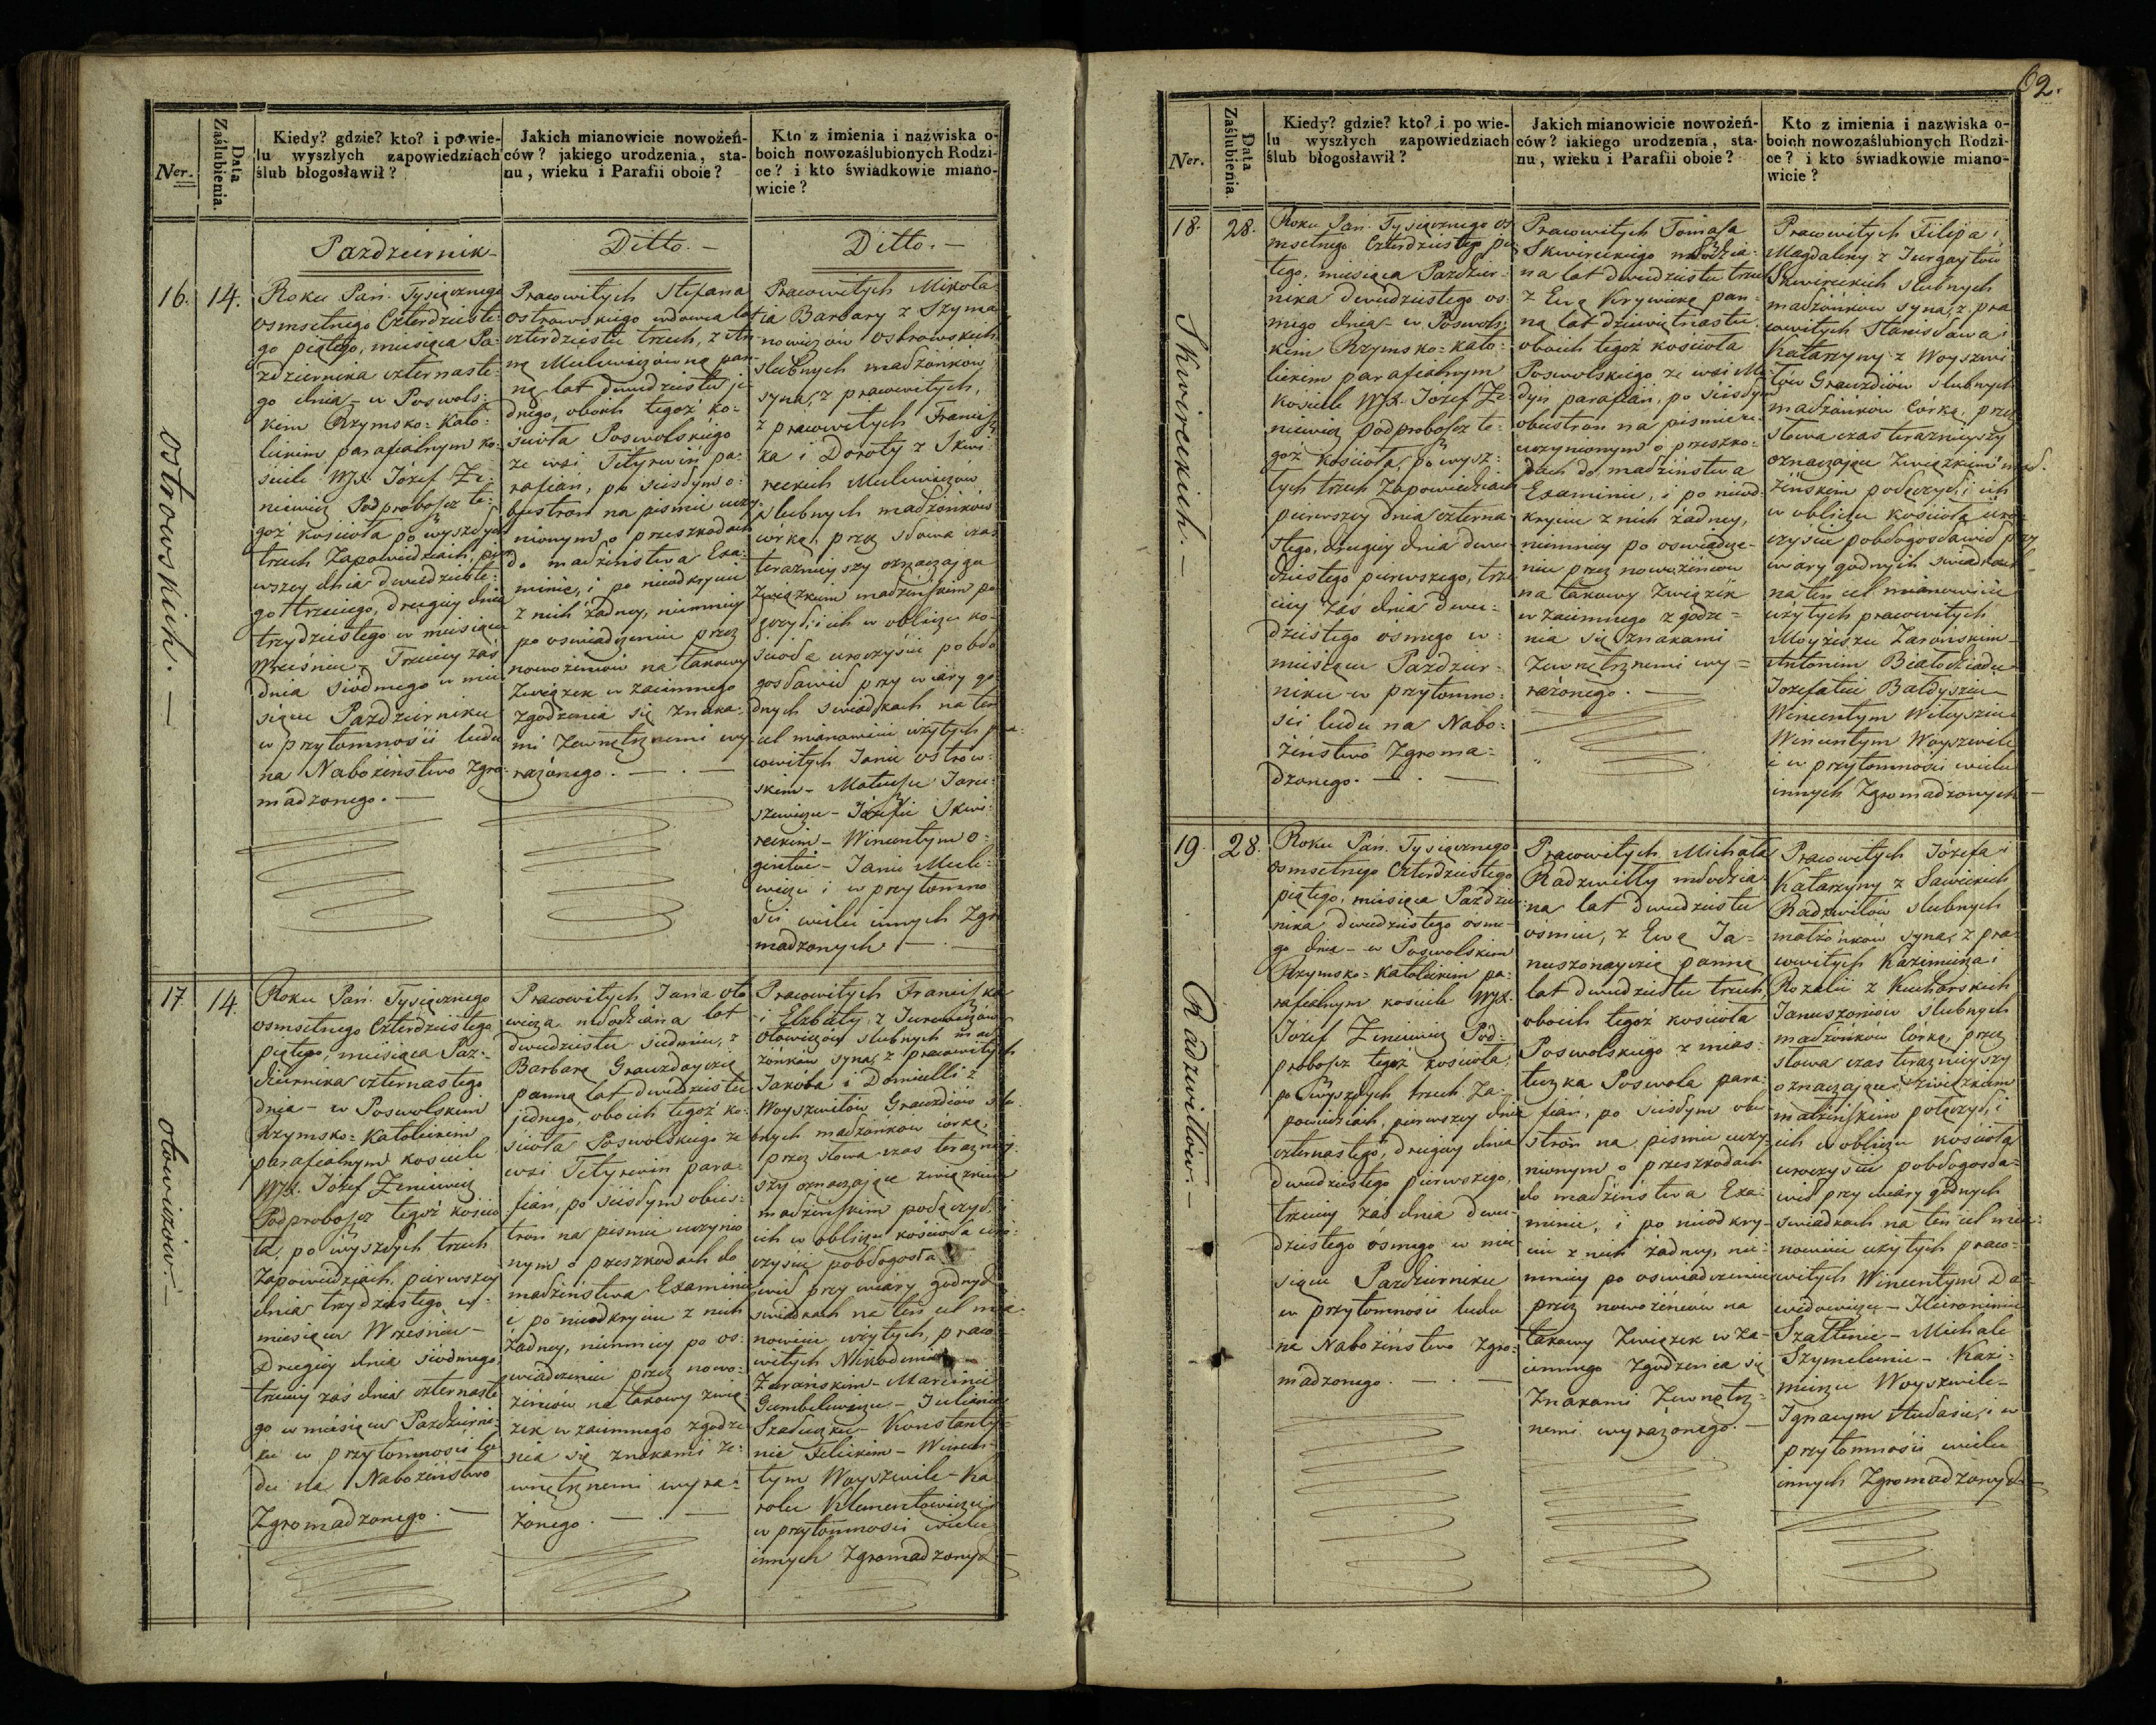 Ner.
Data
Zaślubienia.
Kiedy? gdzie? kto? i po wie-
lu wyszłych zapowiedziach
ślub błogosławił?
Jakich mianowicie nowożeń-
ców? jakiego urodzenia, sta-
nu, wieku i Parafii oboie?
Kto z imienia i nazwiska o-
boich nowozaślubionych Rodzi-
ce? i kto świadkowie miano-
wicie?
Pazdziernik
Ditto. —
Ditto. —
16.
14.
Ostrowskich. —
Roku Pań. Tysiącznego
osmsetnego Czterdzieste-
go piątego, miesiąca Pa-
ździernika czternaste-
go dnia - w Poswols-
kim Rzymsko-Kato-
lickim parafialnym ko-
ściele WJX. Józef Ze-
niewicz Podproboszcz te-
goż kościoła po wyszłych
trzech Zapowiedziach, pier-
wszey dnia dwudzieste-
go trzeciego, drugiey dnia
trzydziestego w miesiącu
Wrześniu, Trzeciey zaś
dnia siódmego w mie-
siącu Pazdzierniku
w przytomności ludu
na Nabożeństwo Zgro-
madzonego. —
Pracowitych Stefana
Ostrowskiego wdowca lat
czterdziestu trzech, z An-
ną Mulewiczówną pan-
ną lat dwudziestu je-
dnego, oboich tegoż ko-
ścioła Poswolskiego
ze wsi Tetyrwin pa-
rafian, po ścisłym o-
bustron na pismie uczy-
nionym o przeszkodach
do małżeństwa Exa-
minie, i po nieodkryciu
z nich żadney, niemniey
po oswiadczeniu przez
nowożeńców na takowy
Związek w zaiemnego
zgodzenia się Znaka-
mi Zewnętrznemi wy-
rażonego. — . —
Pracowitych Mikoła-
ia Barbary z Szyma-
nowiczów Ostrowskich
slubnych małżonków
syna, z pracowitych,
z pracowitych Francisz-
ka i Doroty z Skwi-
reckich Mulewiczów
slubnych małżonków
córką, przez słowa czas
teraznieyszy oznaczające
Związkiem małżeńskim po-
łączył, i ich w obliczu ko-
ścioła uroczyście pobło-
gosławił przy wiary go-
dnych swiadkach na ten
cel mianowicie użytych pra-
cowitych Janie Ostrow-
skim - Mateuszu Jaru-
szewiczu - Józefie Skwi-
reckim - Wincentym O-
gintie - Janie Mule-
wiczu i w przytomno-
ści wielu innych Zgro-
madzonych. — . —
17.
14.
Otowiczów. —
Roku Pań. Tysiącznego
osmsetnego Czterdziestego
piątego, miesiąca Paz-
dziernika czternastego
dnia - w Poswolskim
Rzymsko-Katolickim
parafialnym kościele
WJX. Józef Zeniewicz
Podproboszcz tegoż kościo-
ła, po wyszłych trzech
Zapowiedziach, pierwszey
dnia trzydziestego w
miesiącu Wrześniu —
Drugiey dnia siódmego,
trzeciey zaś dnia czternaste-
go w miesiącu Pazdzierni-
ku w przytomności lu-
du na Nabożeństwo
Zgromadzonego. —
Pracowitych Jana Oto-
wicza młodziana lat
dwudziestu siedmiu, z
Barbarą Grauzdayczią
panną lat dwudziestu
jednego, oboich tegoż ko-
ścioła Poswolskiego ze
wsi Tetyrwin para-
fian, po ścisłym obus-
tron na pismie uczynio-
nym o przeszkodach do
małżeństwa Examinie
i po nieodkryciu z nich
żadney, niemniey po os-
wiadczeniu przez nowo-
żeńców na takowy zwią-
zek w zaiemnego zgodze-
nia się znakami ze-
wnętrznemi wyra-
żonego. — . —
Pracowitych Franciszka
i Elżbiety z Jurewiczów
Otowiczów slubnych mał-
żonków syna, z pracowitych
Jakóba i Domicelli z
Woyszwiłów Grauzdiów slu-
bnych małżonków córką,
przez słowa czas terazniey-
szy oznaczające związkiem
małżeńskim połączył, i
ich w obliczu kościoła uro-
czyście pobłogosła-
wił przy wiary godnych
swiadkach na ten cel mia-
nowicie użytych, praco-
witych Nikodemie
Zarańskim - Marcinie
Gumbelewiczu - Julianie
Szaduyku - Konstanty-
nie Felickim - Wincen-
tym Woyszwile - Ka-
rolu Klementowiczu i
w przytomności wielu
innych Zgromadzonych —
62.
Ner.
Data
Zaślubienia.
Kiedy? gdzie? kto? i po wie-
lu wyszłych zapowiedziach
ślub błogosławił?
Jakich mianowicie nowożeń-
ców? iakiego urodzenia, sta-
nu, wieku i Parafii oboie?
Kto z imienia i nazwiska o-
boich nowozaślubionych Rodzi-
ce? i kto świadkowie miano-
wicie?
18.
28.
Skwireckich. —
Roku Pań. Tysiącznego os-
msetnego Czterdziestego pią-
tego, miesiąca Pazdzier-
nika dwudziestego os-
mego dnia - w Poswols-
kim Rzymsko-Kato-
lickim parafialnym
kościele WJX. Józef Ze-
niewicz podproboszcz te-
goż kościoła, po wysz-
łych trzech Zapowiedziach
pierwszey dnia czterna-
stego, drugiey dnia dwu-
dziestego pierwszego, trze-
ciey zaś dnia dwu-
dziestego ósmego w
miesiącu Pazdzier-
niku w przytomno-
ści ludu na Nabo-
żeństwo Zgroma-
dzonego. — . —
Pracowitych Tomasza
Skwireckiego młodzia-
na lat dwudziestu trzech
z Ewą Krywicką pan-
ną lat dziewiętnastu
oboich tegoż kościoła
Poswolskiego ze wsi Me-
dyn parafian, po ścisłym
obustron na pismie
uczynionym o przeszko-
dach do małżeństwa
Examinie, i po nieod-
kryciu z nich żadney,
niemniey po oswiadcze-
niu przez nowożeńców
na takowy Związek
w zaiemnego zgodze-
nia się znakami
Zewnętrznemi wy-
rażonego. —
Pracowitych Filipa i
Magdaleny z Jurgaytów
Skwireckich slubnych
małżonków syna, z pra-
cowitych Stanisława i
Katarzyny z Woyszwi-
łów Grauzdiów slubnych
małżonków Córką, przez
słowa czas teraznieyszy
oznaczające Związkiem mał-
żeńskim połączył, i ich
w obliczu kościoła uro-
czyście pobłogosławił przy
wiary godnych swiadkach
na ten cel mianowicie
użytych pracowitych
Moyżeszu Zarańskim —
Antonim Białodziadu
Jozefatie Bałdyszu —
Wincentym Witoyszu
Wincentym Woyszwile
i w przytomności wielu
innych Zgromadzonych —
19.
28.
Radzwiłów. —
Roku Pań. Tysiącznego
Osmsetnego Czterdziestego
piątego, miesiąca Pazdzier-
nika dwudziestego osme-
go dnia - w Poswolskim
Rzymsko-Katolickim pa-
rafialnym kościele WJX.
Józef Zeniewicz Pod-
proboszcz tegoż kościoła,
po wyszłych trzech Za-
powiedziach, pierwszey dnia
czternastego, drugiey dnia
dwudziestego pierwszego,
trzeciey zaś dnia dwu-
dziestego ósmego w mie-
siącu Pazdzierniku
w przytomności ludu
na Nabożeństwo Zgro-
madzonego. — . —
Pracowitych Michała
Radzwiłły młodzia-
na lat dwudziestu
ósmiu, z Ewą Ja-
nuszonayczią panną
lat dwudziestu trzech,
oboich tegoż kościoła
Poswolskiego z mias-
teczka Poswola para-
fian, po ścisłym obu-
stron na pismie uczy-
nionym o przeszkodach
do małżeństwa Exa-
minie, i po nieodkry-
ciu z nich żadney, nie-
mniey po oswiadczeniu
przez nowożeńców na
takowy Związek w za-
iemnego Zgodzenia się
Znakami Zewnętrz-
nemi wyrażonego. —
Pracowitych Józefa i
Katarzyny z Sawickich
Radzwiłów slubnych
małżonków syna, z pra-
cowitych Kazimierza i
Rozalii z Kucharskich
Januszoniów slubnych
małżonków Córką, przez
słowa czas teraznieyszy
oznaczające, Związkiem
małżeńskim połączył, i
ich w obliczu kościoła
uroczyście pobłogosła-
wił przy wiary godnych
swiadkach na ten cel mia-
nowicie użytych praco-
witych Wincentym Da-
widowiczu - Hieronimie
Szatłenie - Michale
Szymelunie - Kazi-
mierzu Woyszwile —
Ignacym Audasiu, i w
przytomności wielu
innych Zgromadzonych —